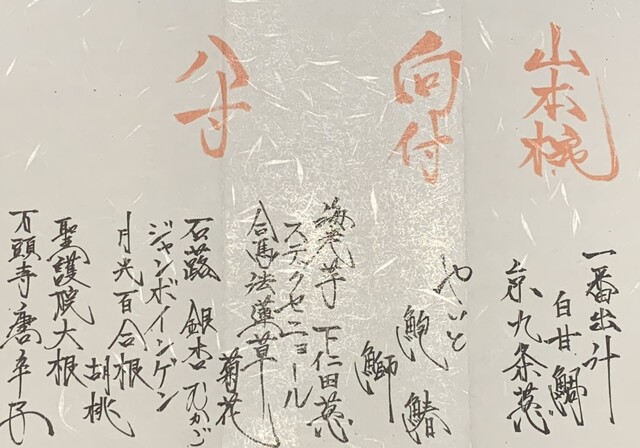 山本椀
一番出汁
白甘鯛
京九条葱
向付
やいと
鮑 鰆
鰤
海老芋 下仁田葱
スティックセニョール
合馬法蓮草
八寸
菊花
石蕗 銀杏 むかご
ジャンボインゲン
月光百合根 胡桃
聖護院大根
万願寺唐辛子